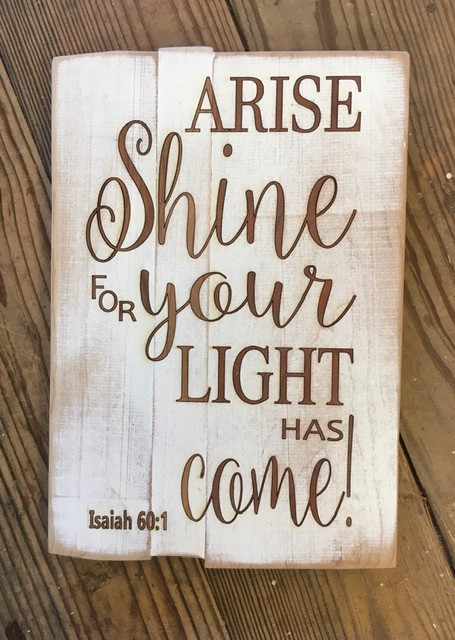 ARISE
Shine
FOR your
LIGHT
HAS
come!
Isaiah 60:1